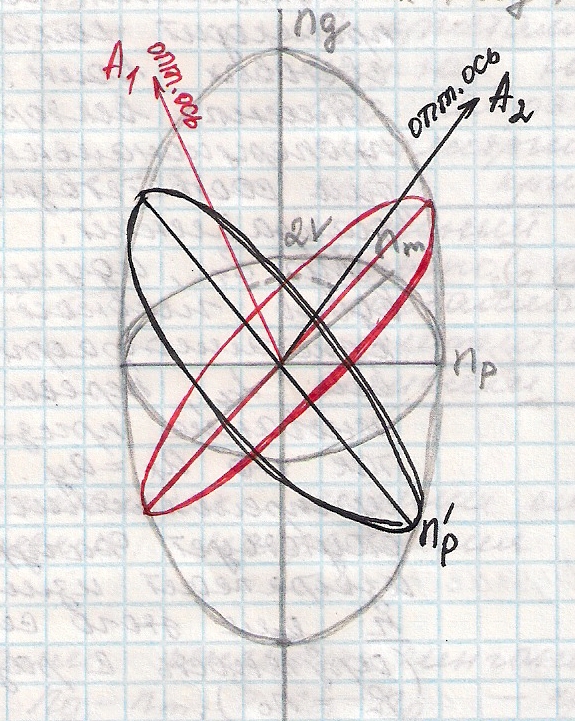 ng
A1 опт. ось
опт. ось A2
2V
nm
np
n'p